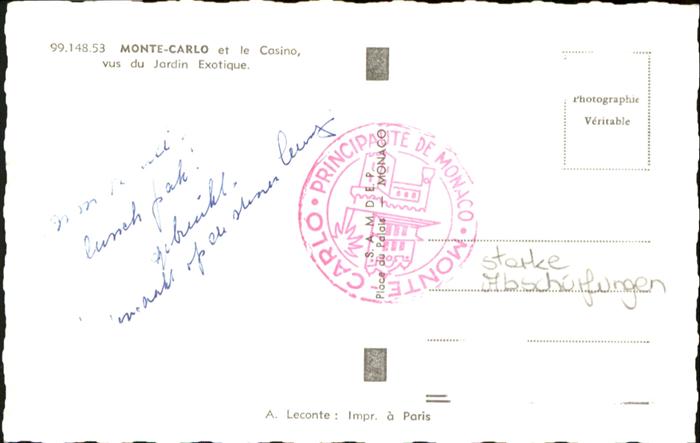 99.148.53 MONTE-CARLO et le Casino,
vus du Jardin Exotique.
Photographie
Véritable
lunch pak.
gebruikt.
op de
PRINCIPAUTÉ DE MONACO
MONTE CARLO
S.A.M.D.E.P.
Place du Palais - MONACO
starke
Abschürfungen
A. Leconte : Impr. à Paris